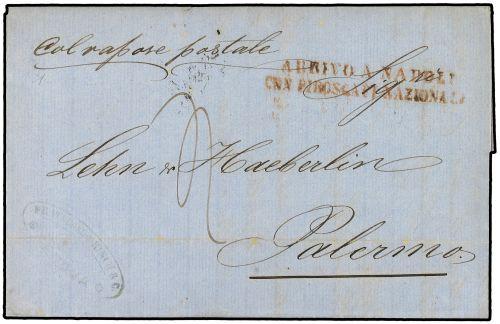 Col vapore postale
ARRIVO A NAPOLI
CON PIROSCAFI NAZIONALI
Sigri
Lehn & Haeberlin
2
Palermo.